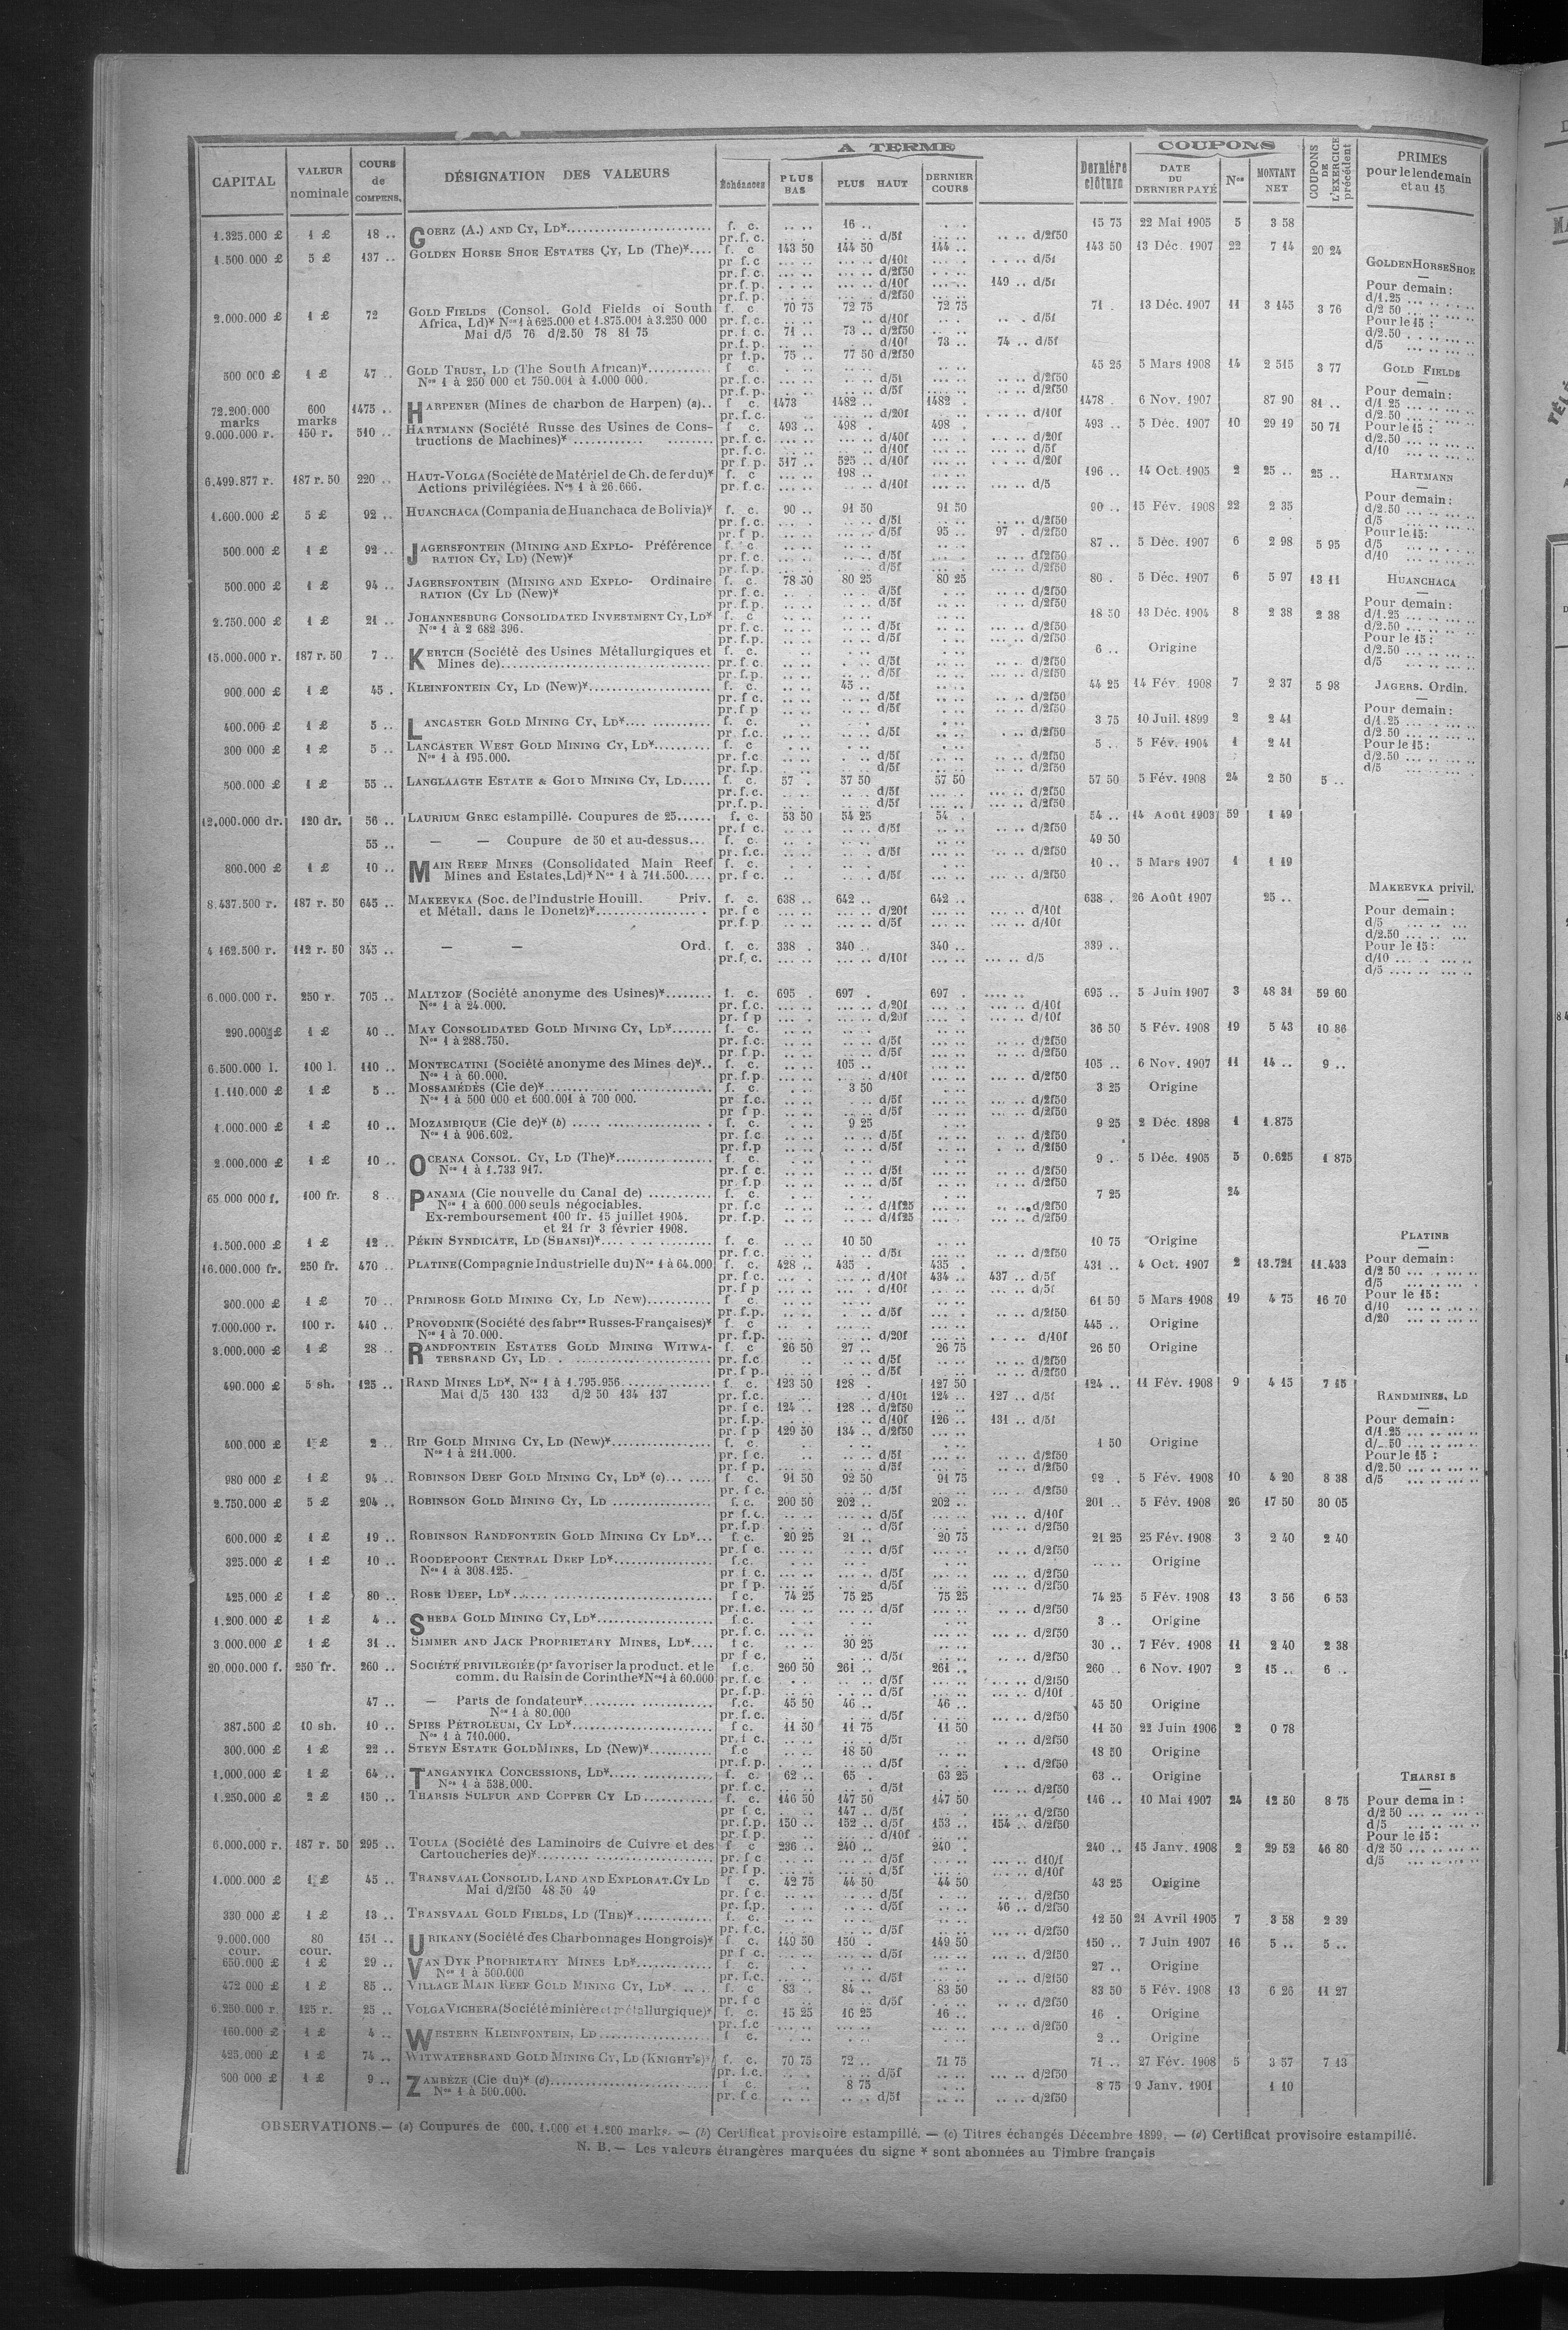 A TERME COUPONS
CAPITAL VALEUR nominale COURS de COMPENS. DÉSIGNATION DES VALEURS Échéances PLUS BAS PLUS HAUT DERNIER COURS Dernière clôture DATE DU DERNIER PAYÉ Nos MONTANT NET COUPONS DE L'EXERCICE précédent PRIMES pour le lendemain et au 15
1.325.000 £ 1 £ 18 .. GOERZ (A.) AND CY, LD* f. c. 16 .. 15 75 22 Mai 1905 5 3 58
pr.f.c. d/5f d/2f50
1.500.000 £ 5 £ 137 .. GOLDEN HORSE SHOE ESTATES CY, LD (The)* f. c 143 50 144 50 144 .. 143 50 13 Déc. 1907 22 7 14 20 24
2.000.000 £ 1 £ 72 GOLD FIELDS (Consol. Gold Fields of South f. c 70 75 72 75 72 75 71 . 13 Déc. 1907 11 3 145 3 76
Africa, Ld)* Nos 1 à 625.000 et 1.875.001 à 3.250 000
Mai d/5 76 d/2.50 78 81 75 pr.f.c. 71 .. 73 .. d/2f50
pr.f.p. d/10f 73 .. 74 .. d/5f
pr f.p. 75 .. 77 50 d/2f50
500 000 £ 1 £ 47 .. GOLD TRUST, LD (The South African)* 45 25 5 Mars 1908 14 2 515 3 77
Nos 1 à 250 000 et 750.001 à 1.000 000.
72.200.000 marks 600 marks 1475 .. HARPENER (Mines de charbon de Harpen) (a).. f c. 1473 1482 .. 1482 . 1478 . 6 Nov. 1907 87 90 81 ..
9.000.000 r. 150 r. 510 .. HARTMANN (Société Russe des Usines de Cons- f c. 493 .. 498 . 498 . 493 .. 5 Déc. 1907 10 29 19 50 71
tructions de Machines)*
pr f p. 517 .. 525 .. d/10f d/20f
6.499.877 r. 187 r. 50 220 .. HAUT-VOLGA (Société de Matériel de Ch. de fer du)* f. c 198 .. 196 .. 14 Oct. 1905 2 25 .. 25 ..
Actions privilégiées. Nos 1 à 26.666. pr.f.c. d/10f d/5
1.600.000 £ 5 £ 92 .. HUANCHACA (Compania de Huanchaca de Bolivia)* f. c. 90 .. 91 50 91 50 90 .. 15 Fév. 1908 22 2 35
pr.f p. d/5f 95 .. 97 . d/2f50
500.000 £ 1 £ 92 .. JAGERSFONTEIN (MINING AND EXPLO- Préférence 87 .. 5 Déc. 1907 6 2 98 5 95
RATION CY, LD) (New)*
500.000 £ 1 £ 94 .. JAGERSFONTEIN (MINING AND EXPLO- Ordinaire f. c. 78 50 80 25 80 25 80 . 5 Déc. 1907 6 5 97 13 11
RATION (CY LD (New)*
2.750.000 £ 1 £ 21 .. JOHANNESBURG CONSOLIDATED INVESTMENT CY, LD* 18 50 13 Déc. 1904 8 2 38 2 38
Nos 1 à 2 682 396.
15.000.000 r. 187 r. 50 7 .. KERTCH (Société des Usines Métallurgiques et 6 .. Origine
Mines de)
900.000 £ 1 £ 45 . KLEINFONTEIN CY, LD (New)* f. c. 45 .. 44 25 14 Fév. 1908 7 2 37 5 98
400.000 £ 1 £ 5 .. LANCASTER GOLD MINING CY, LD* 3 75 10 Juil. 1899 2 2 41
300 000 £ 1 £ 5 .. LANCASTER WEST GOLD MINING CY, LD* 5 .. 5 Fév. 1904 1 2 41
Nos 1 à 195.000.
500.000 £ 1 £ 55 .. LANGLAAGTE ESTATE & GOLD MINING CY, LD f. c. 57 . 57 50 57 50 57 50 5 Fév. 1908 24 2 50 5 ..
12.000.000 dr. 120 dr. 56 .. LAURIUM GREC estampillé. Coupures de 25 f. c. 53 50 54 25 54 . 54 .. 14 Août 1903 59 1 49
55 .. — — Coupure de 50 et au-dessus... 49 50
800.000 £ 1 £ 10 .. MAIN REEF MINES (Consolidated Main Reef 10 .. 5 Mars 1907 1 1 19
Mines and Estates, Ld)* Nos 1 à 711.500
8.437.500 r. 187 r. 50 645 .. MAKEEVKA (Soc. de l'Industrie Houill. Priv. f. c. 638 .. 642 .. 642 .. 638 . 26 Août 1907 25 ..
et Métall. dans le Donetz)*
4 162.500 r. 112 r. 50 345 .. — — Ord. f. c. 338 . 340 .. 340 .. 339 ..
6.000.000 r. 250 r. 705 .. MALTZOF (Société anonyme des Usines)* f. c. 695 . 697 . 697 . 695 .. 5 Juin 1907 3 48 31 59 60
Nos 1 à 24.000.
290.000 £ 1 £ 40 .. MAY CONSOLIDATED GOLD MINING CY, LD* 36 50 5 Fév. 1908 19 5 43 10 86
Nos 1 à 288.750.
6.500.000 l. 100 l. 110 .. MONTECATINI (Société anonyme des Mines de)* f. c. 105 .. 105 .. 6 Nov. 1907 11 14 .. 9 ..
Nos 1 à 60.000.
1.110.000 £ 1 £ 5 .. MOSSAMÉDÈS (Cie de)* f. c. 3 50 3 25 Origine
Nos 1 à 500 000 et 600.001 à 700 000.
1.000.000 £ 1 £ 10 .. MOZAMBIQUE (Cie de)* (b) f. c. 9 25 9 25 2 Déc. 1898 1 1.875
Nos 1 à 906.602.
2.000.000 £ 1 £ 10 .. OCEANA CONSOL. CY, LD (The)* 9 . 5 Déc. 1905 5 0.625 1 875
Nos 1 à 1.733 917.
65.000 000 f. 100 fr. 8 PANAMA (Cie nouvelle du Canal de) 7 25 24
Nos 1 à 600.000 seuls négociables.
Ex-remboursement 100 fr. 15 juillet 1904.
et 21 fr 3 février 1908.
1.500.000 £ 1 £ 12 .. PÉKIN SYNDICATE, LD (SHANSI)* f. c 10 50 10 75 Origine
16.000.000 fr. 250 fr. 470 .. PLATINE (Compagnie Industrielle du) Nos 1 à 64.000 f. c. 428 .. 435 . 435 . 431 .. 4 Oct. 1907 2 13.721 11.433
pr f c. d/10f 434 .. 437 .. d/5f
300.000 £ 1 £ 70 .. PRIMROSE GOLD MINING CY, LD New) 61 50 5 Mars 1908 19 4 75 16 70
7.000.000 r. 100 r. 440 .. PROVODNIK (Société des fabres Russes-Françaises)* 445 .. Origine
Nos 1 à 70.000.
3.000.000 £ 1 £ 28 .. RANDFONTEIN ESTATES GOLD MINING WITWA- f. c 26 50 27 .. 26 75 26 50 Origine
TERSRAND CY, LD
490.000 £ 5 sh. 125 .. RAND MINES LD*, Nos 1 à 1.795.956 f. c. 123 50 128 . 127 50 124 .. 11 Fév. 1908 9 4 15 7 15
Mai d/5 130 133 d/2 50 134 137 pr. f.c. d/10f 124 .. 127 .. d/5f
pr. f c 124 .. 128 .. d/2f50
pr. f.p. d/10f 126 .. 131 .. d/5f
pr. f p 129 50 134 .. d/2f50
400.000 £ 1 £ 2 .. RIP GOLD MINING CY, LD (New)* 1 50 Origine
Nos 1 à 211.000.
980 000 £ 1 £ 94 .. ROBINSON DEEP GOLD MINING CY, LD* (c) f c. 91 50 92 50 91 75 92 . 5 Fév. 1908 10 4 20 8 38
2.750.000 £ 5 £ 204 .. ROBINSON GOLD MINING CY, LD f. c. 200 50 202 .. 202 .. 201 .. 5 Fév. 1908 26 17 50 30 05
600.000 £ 1 £ 19 .. ROBINSON RANDFONTEIN GOLD MINING CY LD* f. c. 20 25 21 .. 20 75 21 25 25 Fév. 1908 3 2 40 2 40
325.000 £ 1 £ 10 .. ROODEPOORT CENTRAL DEEP LD* Origine
Nos 1 à 308.125.
425.000 £ 1 £ 80 .. ROSE DEEP, LD* f c. 74 25 75 25 75 25 74 25 5 Fév. 1908 13 3 56 6 53
1.200.000 £ 1 £ 4 .. SHEBA GOLD MINING CY, LD* 3 .. Origine
3.000.000 £ 1 £ 31 .. SIMMER AND JACK PROPRIETARY MINES, LD* f c. 30 25 30 .. 7 Fév. 1908 11 2 40 2 38
20.000.000 f. 250 fr. 260 .. SOCIÉTÉ PRIVILEGIÉE (pr favoriser la product. et le f.c. 260 50 261 .. 261 .. 260 .. 6 Nov. 1907 2 15 .. 6 ..
comm. du Raisin de Corinthe* Nos 1 à 60.000
47 .. — Parts de fondateur* f.c. 45 50 46 .. 46 .. 45 50 Origine
Nos 1 à 80.000
387.500 £ 10 sh. 10 .. SPIES PÉTROLEUM, CY LD* f c. 11 50 11 75 11 50 11 50 22 Juin 1906 2 0 78
Nos 1 à 710.000.
300.000 £ 1 £ 22 .. STEYN ESTATE GOLDMINES, LD (New)* f.c 18 50 18 50 Origine
1.000.000 £ 1 £ 64 .. TANGANYIKA CONCESSIONS, LD* f. c. 62 .. 65 . 63 25 63 .. Origine
Nos 1 à 538.000.
1.250.000 £ 2 £ 150 .. THARSIS SULFUR AND COPPER CY LD f. c. 146 50 147 50 147 50 146 .. 10 Mai 1907 24 12 50 8 75
pr f c. 147 .. d/5f d/2f50
pr.f.p. 150 .. 152 .. d/5f 153 .. 154 .. d/2f50
6.000.000 r. 187 r. 50 295 .. TOULA (Société des Laminoirs de Cuivre et des f c 236 .. 240 .. 240 . 240 .. 15 Janv. 1908 2 29 52 46 80
Cartoucheries de)*
1.000.000 £ 1 £ 45 .. TRANSVAAL CONSOLID. LAND AND EXPLORAT. CY LD f c. 42 75 44 50 44 50 43 25 Origine
Mai d/2f50 48 50 49
pr. f.p. d/5f 46 .. d/2f50
330 000 £ 1 £ 13 .. TRANSVAAL GOLD FIELDS, LD (THE)* 12 50 21 Avril 1905 7 3 58 2 39
9.000.000 cour. 80 cour. 151 .. URIKANY (Société des Charbonnages Hongrois)* f. c. 149 50 150 . 149 50 150 .. 7 Juin 1907 16 5 .. 5 ..
650.000 £ 1 £ 29 .. VAN DYK PROPRIETARY MINES LD* 27 .. Origine
Nos 1 à 500.000
472 000 £ 1 £ 85 .. VILLAGE MAIN REEF GOLD MINING CY, LD* f. c 83 . 84 .. 83 50 83 50 5 Fév. 1908 13 6 26 11 27
6.250.000 r. 125 r. 25 .. VOLGA VICHERA (Société minière et métallurgique)* f. c. 15 25 16 25 16 .. 16 . Origine
160.000 £ 1 £ 4 .. WESTERN KLEINFONTEIN, LD 2 .. Origine
425.000 £ 1 £ 74 .. WITWATERSRAND GOLD MINING CY, LD (KNIGHT'S)* f. c. 70 75 72 .. 71 75 71 .. 27 Fév. 1908 5 3 57 7 13
600 000 £ 1 £ 9 .. ZAMBÈZE (Cie du)* (d) f c. 8 75 8 75 9 Janv. 1901 1 10
Nos 1 à 500.000.
GOLDEN HORSE SHOE
Pour demain:
d/1.25
d/2 50
Pour le 15:
d/2.50
d/5
GOLD FIELDS
Pour demain:
d/1 25
d/2.50
Pour le 15:
d/2.50
d/10
HARTMANN
Pour demain:
d/2.50
d/5
Pour le 15:
d/5
d/10
HUANCHACA
Pour demain:
d/1.25
d/2.50
Pour le 15:
d/2.50
d/5
JAGERS. Ordin.
Pour demain:
d/1.25
d/2.50
Pour le 15:
d/2.50
d/5
MAKEEVKA privil.
Pour demain:
d/5
d/2.50
Pour le 15:
d/10
d/5
PLATINE
Pour demain:
d/2 50
d/5
Pour le 15:
d/10
d/20
RANDMINES, LD
Pour demain:
d/1.25
d/ 50
Pour le 15:
d/2.50
d/5
THARSI S
Pour dema in:
d/2 50
d/5
Pour le 15:
d/2 50
d/5
OBSERVATIONS.— (a) Coupures de 600. 1.000 et 1.200 marks. — (b) Certificat provisoire estampillé. — (c) Titres échangés Décembre 1899. — (d) Certificat provisoire estampillé.
N. B.— Les valeurs étrangères marquées du signe * sont abonnées au Timbre français